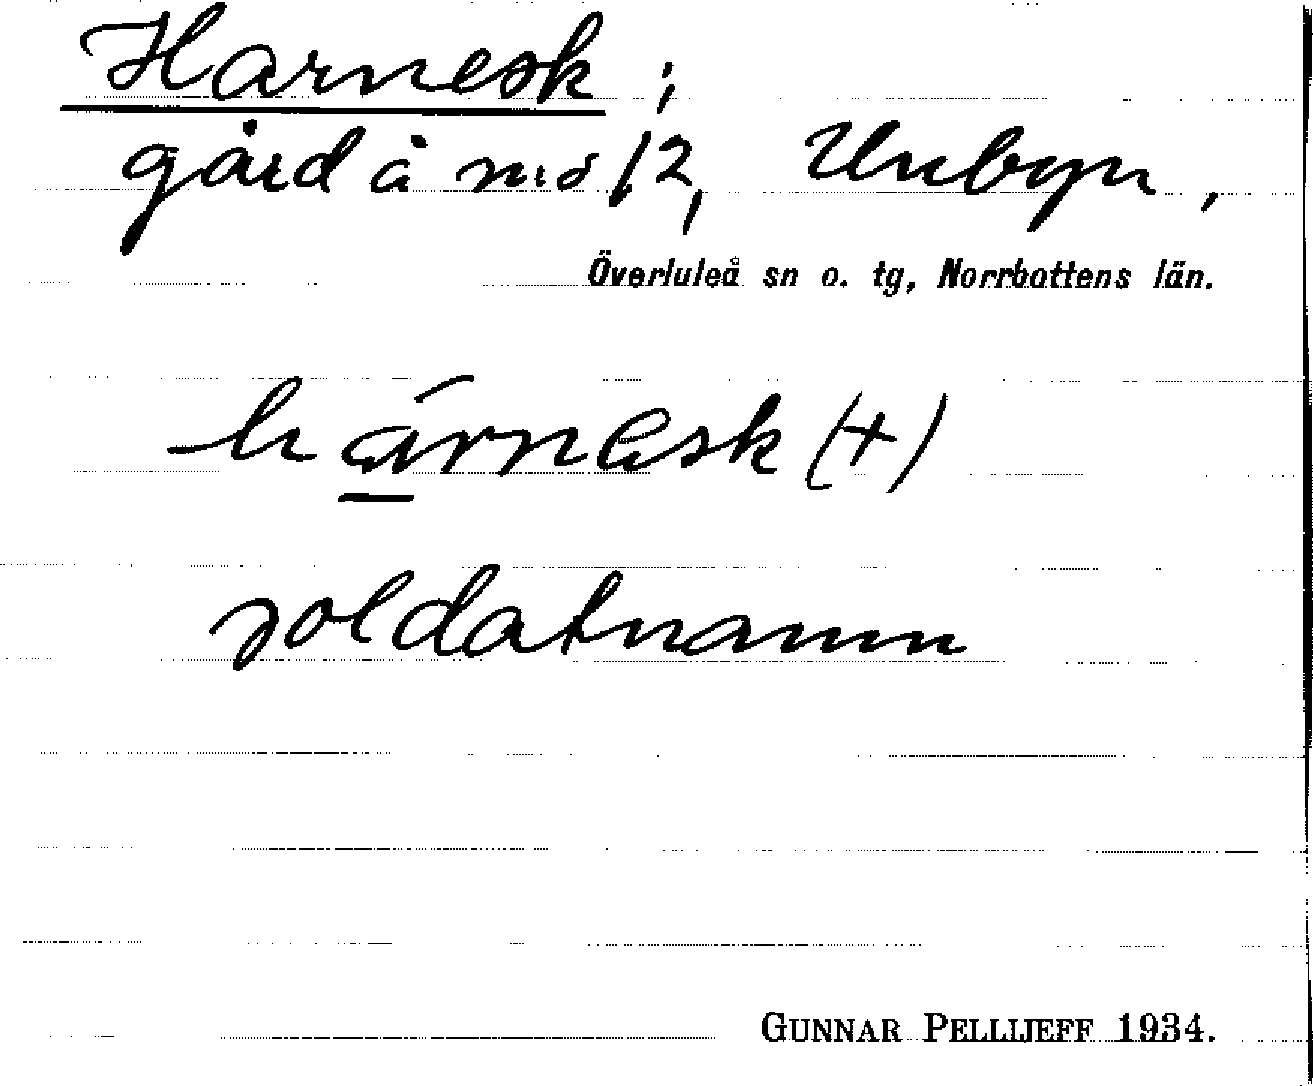 Harnesk;
gård å nr 12, Unbyn,
Överluleå sn o. tg, Norrbottens län.
hárnesk (+)
soldatnamn
GUNNAR PELLIJEFF 1934.